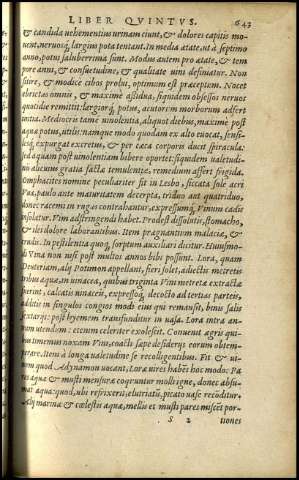 LIBER QVINTVS. 643
& candida uehementius urinam ciunt, & dolores capitis mo-
uent, neruosq́; largius pota tentant. In media ætate, ut à septimo
anno, potus saluberrima sunt. Modus autem pro ætate, & tem
pore anni, & consuetudine, & qualitate uini definiatur. Non
sitire, & modice cibos probui, optimum est præceptum. Nocet
ebrietas omnis, & maxime assidua, siquidem obsessos neruos
quotidie remittit: largiorq́; potus, acutorum morborum adfert
initia. Mediocris tamen uinolentia, aliquot diebus, maxime post
aquæ potus, utilis: namque modo quodam ex alto euocat, sensi-
lisq́; expurgat excretus, & per cæca corporis ducit spiracula:
sed aquam post uinolentiam bibere oportet: siquidem ualetudi-
nis alicuius gratia factæ temulentiæ, remedium affert frigida.
Omphacites nomine peculiariter fit in Lesbo, siccata sole acri
Vua, paulo ante maturitatem decerpta, triduo aut quatriduo,
donec racemi in rugas contrahantur, expressumq́; Vinum cadis
insolatur. Vim adstringendi habet. Prodest dissolutis, stomacho,
& ilei dolore laborantibus. Item prægnantium malaciæ, & cru-
dis. In pestilentia quoq́; sorptum auxiliari dicitur. Huiusmo-
di Vina non nisi post multos annos bibi possunt. Lora, quam
Deuteriam, alij Potimon appellant, fieri solet, adiectis metretis
tribus aquæ, in uinacea, quibus triginta Vini metretæ extractæ
fuerint, calcatis uinaceis, expressoq́; decocto ad tertias partes,
additis in singulos congios modi eius qui remansit, binis salis
sextarijs: post hyemem transfunditur in uasa. Lora intra an-
num utendum: etenim celeriter exolescit. Conuenit ægris qui-
bus timemus noxam Vini, coactis sæpe desiderijs eorum obtem-
perare. Item à longa ualetudine se recolligentibus. Fit & ut-
num quod Adynamon uocant, Loræ uires habēs hoc modo: Pa
res aquæ & musti mensuræ coquuntur molli igne, donec absu-
mat aqua: quod, ubi refrixerit, elutriatū, picato uase recōditur.
Aliq marinæ & cælestis aquæ, mellis et musti pares miscēt por-
S 2 tiones